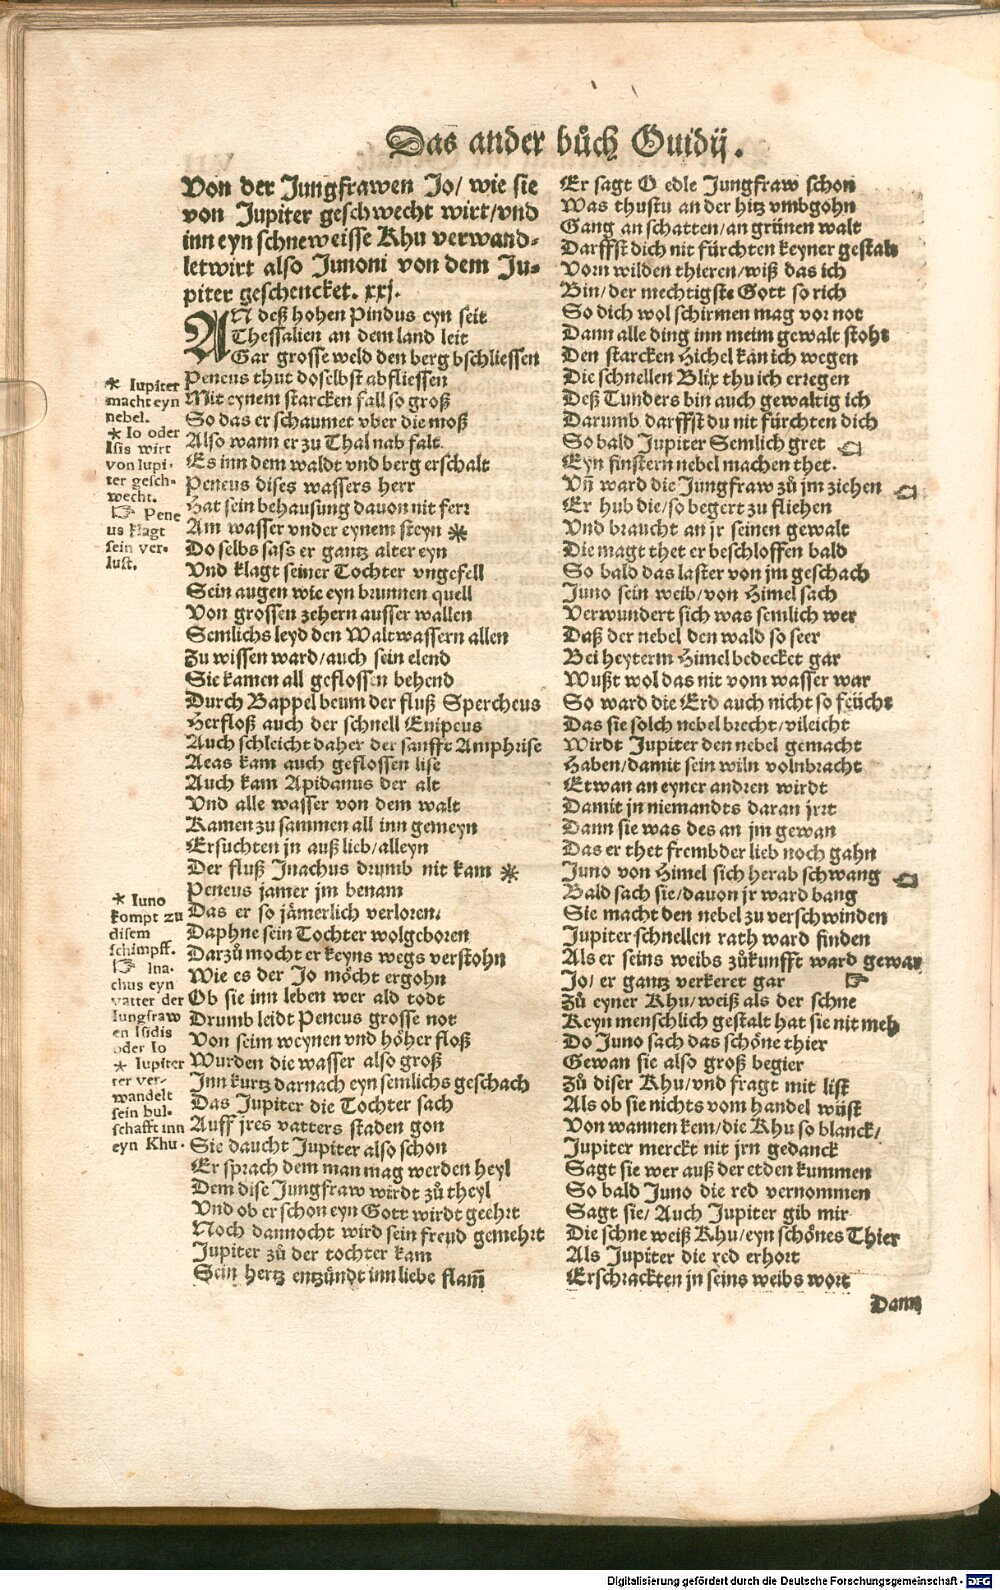 Das ander bůch Ouidij.
Von der Jungfrawen Jo/ wie sie
von Jupiter geschwecht wirt/vnd
inn eyn schneweisse Khu verwand-
letwirt also Junoni von dem Ju-
piter geschencket. xxj.
AN deß hohen Pindus eyn seit
Thessalien an dem land leit
Gar grosse weld den berg bschliessen
Peneus thut doselbst abfliessen
Mit eynem starcken fall so groß
So das er schaumet vber die moß
Also wann er zu Thal nab falt
Es inn dem waldt vnd berg erschalt
Peneus dises wassers herr
Hat sein behausung dauon nit ferr
Am wasser vnder eynem steyn *
Do selbs sass er gantz alter eyn
Vnd klagt seiner Tochter vngefell
Sein augen wie eyn brunnen quell
Von grossen zehern ausser wallen
Semlichs leyd den Waltwassern allen
Zu wissen ward/auch sein elend
Sie kamen all geflossen behend
Durch Bappel beum der fluß Spercheus
Herfloß auch der schnell Enipeus
Auch schleicht daher der sanfft Amphrise
Aeas kam auch geflossen lise
Auch kam Apidanus der alt
Vnd alle wasser von dem walt
Kamen zu sammen all inn gemeyn
Ersuchten jn auß lieb/alleyn
Der fluß Inachus drumb nit kam *
Peneus jamer jm benam
Das er so jämerlich verloren.
Daphne sein Tochter wolgeboren
Darzů mocht er keyns wegs verstohn
Wie es der Jo möcht ergohn
Ob sie inn leben wer ald todt
Drumb leidt Peneus grosse not
Von seim weynen vnd höher floß
Wurden die wasser also groß
Inn kurtz darnach eyn semlichs geschach
Das Jupiter die Tochter sach
Auff jres vatters staden gon
Sie daucht Jupiter also schon
Er sprach dem man mag werden heyl
Dem dise Jungfraw wirdt zů theyl
Vnd ob er schon eyn Gott wirdt geehrt
Noch dannocht wird sein freud gemehrt
Jupiter zů der tochter kam
Sein hertz entzündt inn liebe flam̃
* Iupiter
macht eyn
nebel.
* Io oder
Isis wirt
von Iupi-
ter gesch-
wecht.
☞ Pene
us klagt
sein ver-
lust.
* Iuno
kompt zu
disem
schimpff.
☞ Ina-
chus eyn
vatter der
Iungfraw
en Isidis
oder Io
* Iupiter
ter ver-
wandelt
sein bul-
schafft inn
eyn Khu.
Er sagt O edle Jungfraw schon
Was thustu an der hitz vmbgohn
Gang an schatten/an grünen walt
Darffst dich nit fürchten keyner gestalt
Vorn wilden thieren/wiß das ich
Bin/der mechtigste Gott so rich
So dich wol schirmen mag vor not
Dann alle ding inn meim gewalt stoht
Den starcken Hichel kan ich wegen
Die schnellen Blix thu ich erregen
Deß Tunders bin auch gewaltig ich
Darumb darffst du nit fürchten dich
So bald Jupiter Semlich gret ☜
Eyn finstern nebel machen thet.
Vñ ward die Jungfraw zů jm ziehen ☜
Er hub die/so begert zu fliehen
Vnd braucht an jr seinen gewalt
Die magt thet er beschloffen bald
So bald das laster von jm geschach
Juno sein weib/von Himel sach
Verwundert sich was semlich wer
Daß der nebel den wald so seer
Bei heyterm Himel bedecket gar
Wußt wol das nit vom wasser war
So ward die Erd auch nicht so feücht
Das sie solch nebel brecht/vileicht
Wirdt Jupiter den nebel gemacht
Haben/damit sein wiln volnbracht
Etwan an eyner andren wirdt
Damit jn niemandts daran jrrt
Dann sie was des an jm gewan
Das er thet frembder lieb noch gahn
Juno von Himel sich herab schwang ☜
Bald sach sie/dauon jr ward bang
Sie macht den nebel zu verschwinden
Jupiter schnellen rath ward finden
Als er seins weibs zůkunfft ward gewar
Jo/ er gantz verkeret gar ☞
Zů eyner Khu/weiß als der schne
Keyn menschlich gestalt hat sie nit meh
Do Juno sach das schöne thier
Gewan sie also groß begier
Zů diser Khu/vnd fragt mit list
Als ob sie nichts vom handel wüst
Von wannen kem/die Khu so blanck/
Jupiter merckt nit jrn gedanck
Sagt sie wer auß der etden kummen
So bald Juno die red vernommen
Sagt sie/ Auch Jupiter gib mir
Die schne weiß Khu/eyn schönes Thier
Als Jupiter die red erhort
Erschrackten jn seins weibs wort
Dann
Digitalisierung gefördert durch die Deutsche Forschungsgemeinschaft - DFG